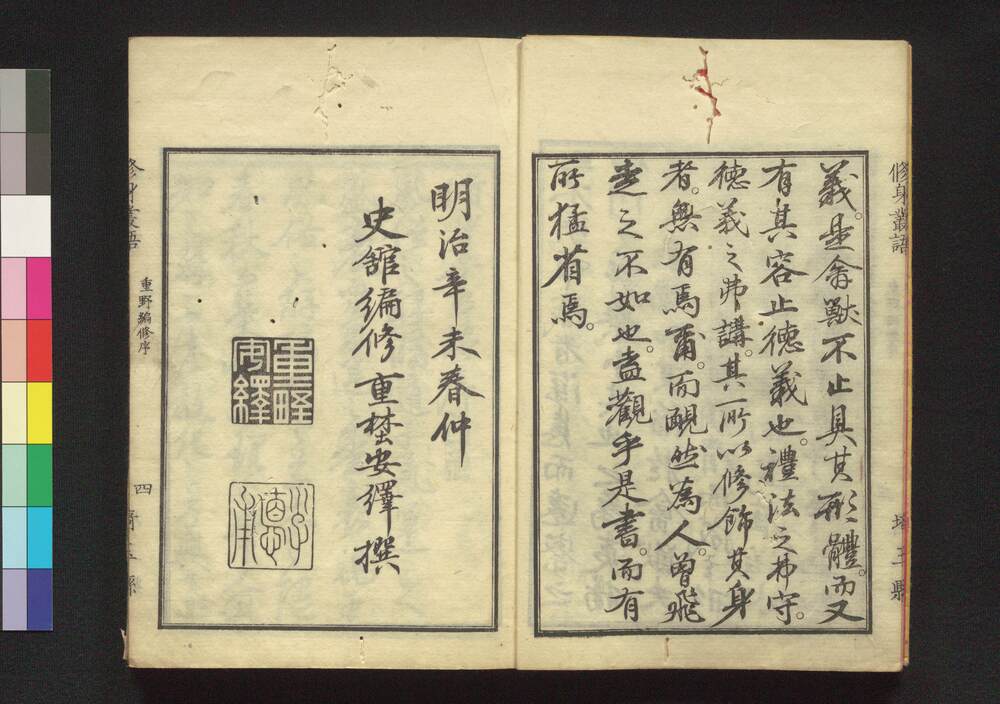 修身叢語
義。是禽獸不止具其形體。而又
有其容止德義也。禮法之弗守。
德義之弗講。其所以修飾其身
者。無有焉爾。而靦然為人。曾飛
走之不如也。盍觀乎是書。而有
所猛省焉。
明治辛未春仲
史舘編修重埜安繹撰
重野
安繹
重野編修序
四